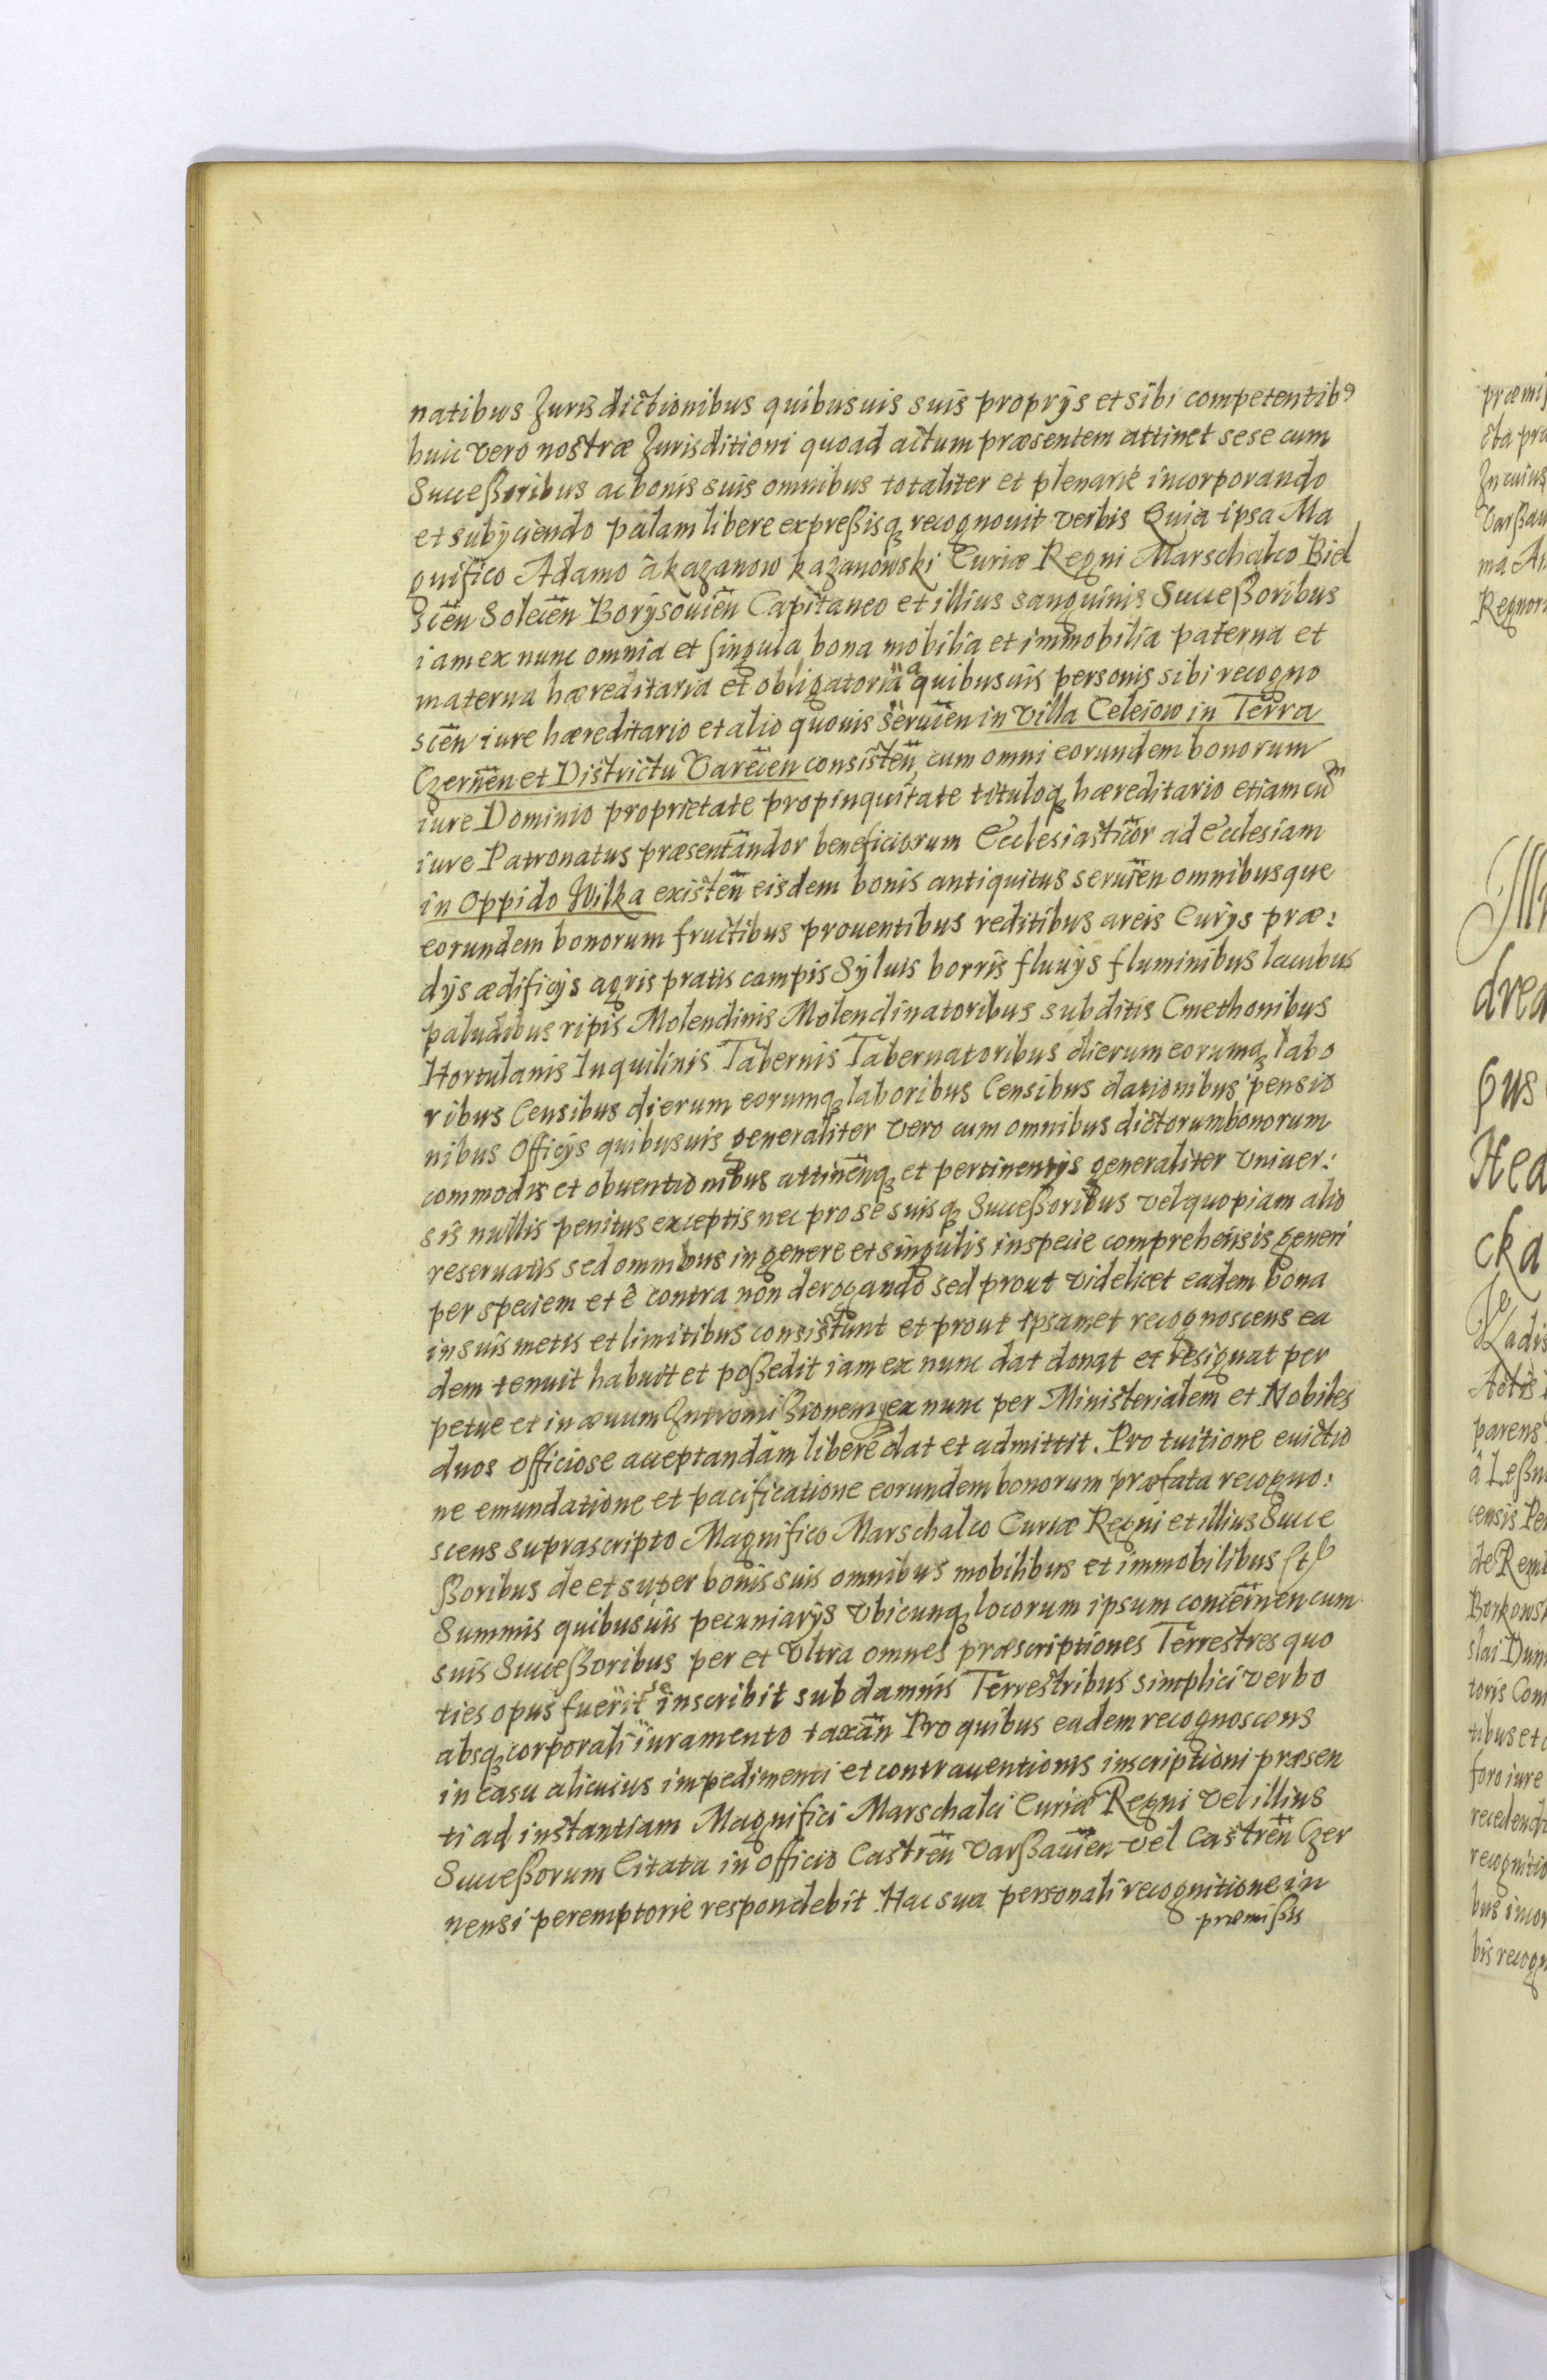 natibus Jurisdictionibus quibusuis suis proprijs et sibi competentib9
huic vero nostræ Jurisditioni quoad actum præsentem attinet sese cum
Successoribus ac bonis suis omnibus totaliter et plenarié incorporando
et subijciendo palam libere expreßisq recognouit verbis Quia ipsa Ma
gnifico Adamo â kazanow kazanowski Curiæ Regni Marschalco Biel
scien̄ Solecien̄ Borysouien̄ Capitaneo et illius sanguinis Succeßoribus
iam ex nunc omnia et singula bona mobilia et immobilia paterna et
materna hæreditaria et obligatoria a quibusuis personis sibi recogno
scien̄ iure hæreditario et alio quouis seruien̄ in villa Celejow in Terra
Czernen̄ et Districtu Varecen̄ consisten̄, cum omni eorundem bonorum
iure Dominio proprietate propinquitate tituloq hæreditario etiam cum
iure Patronatus præsentandor beneficiorum Ecclesiasticor ad Ecclesiam
in Oppido Wilka existen̄ eisdem bonis antiquitus seruien̄ omnibusque
eorundem bonorum fructibus prouentibus reditibus areis Curijs præ:
dijs ædificijs agris pratis campis Syluis borris fluuijs fluminibus lacubus
paludibus ripis Molendinis Molendinatoribus subditis Cmethonibus
Hortulanis Inquilinis Tabernis Tabernatoribus dierum eorumq labo
ribus Censibus dierum eorumq laboribus Censibus dationibus pensio
nibus Officijs quibusuis generaliter vero cum omnibus dictorum bonorum
commodis et obuentionibus attinen̄q et pertinentijs generaliter vniuer:
sis nullis penitus exceptis nec pro se suisq Succeßoribus vel quopiam alio
reseruatis sed omnibus in genere et singulis in specie comprehensis generi
per speciem et ê contra non derogando sed prout videlicet eadem bona
in suis metis et limitibus consistunt et prout ipsamet recognoscens ea
dem tenuit habuit et poßedit iam ex nunc dat donat et resignat per
petue et in æuum Intromißionemq ex nunc per Ministerialem et Nobiles
duos officiose acceptandam liberé dat et admittit. Pro tuitione euictio
ne emundatione et pacificatione eorundem bonorum præfata recogno:
scens suprascripto Magnifico Marschalco Curiæ Regni et illius Succe
ßoribus de et super bonis suis omnibus mobilibus et immobilibus
Summis quibusuis pecuniarijs vbicunq locorum ipsum concernen̄ cum
suis Succeßoribus per et vltra omnes præscriptiones Terrestres quo
ties opus fuerit se inscribit sub damnis Terrestribus simplici verbo
absq corporali iuramento taxan̄ Pro quibus eadem recognoscens
in casu alicuius impedimenti et contrauentionis inscriptioni præsen
ti ad instantiam Magnifici Marschalci Curiæ Regni vel illius
Succeßorum Citata in officio Castren̄ Varßauien̄ vel Castren̄ Czer
nensi peremptorié respondebit. Hac sua personali recognitione in
præmißis